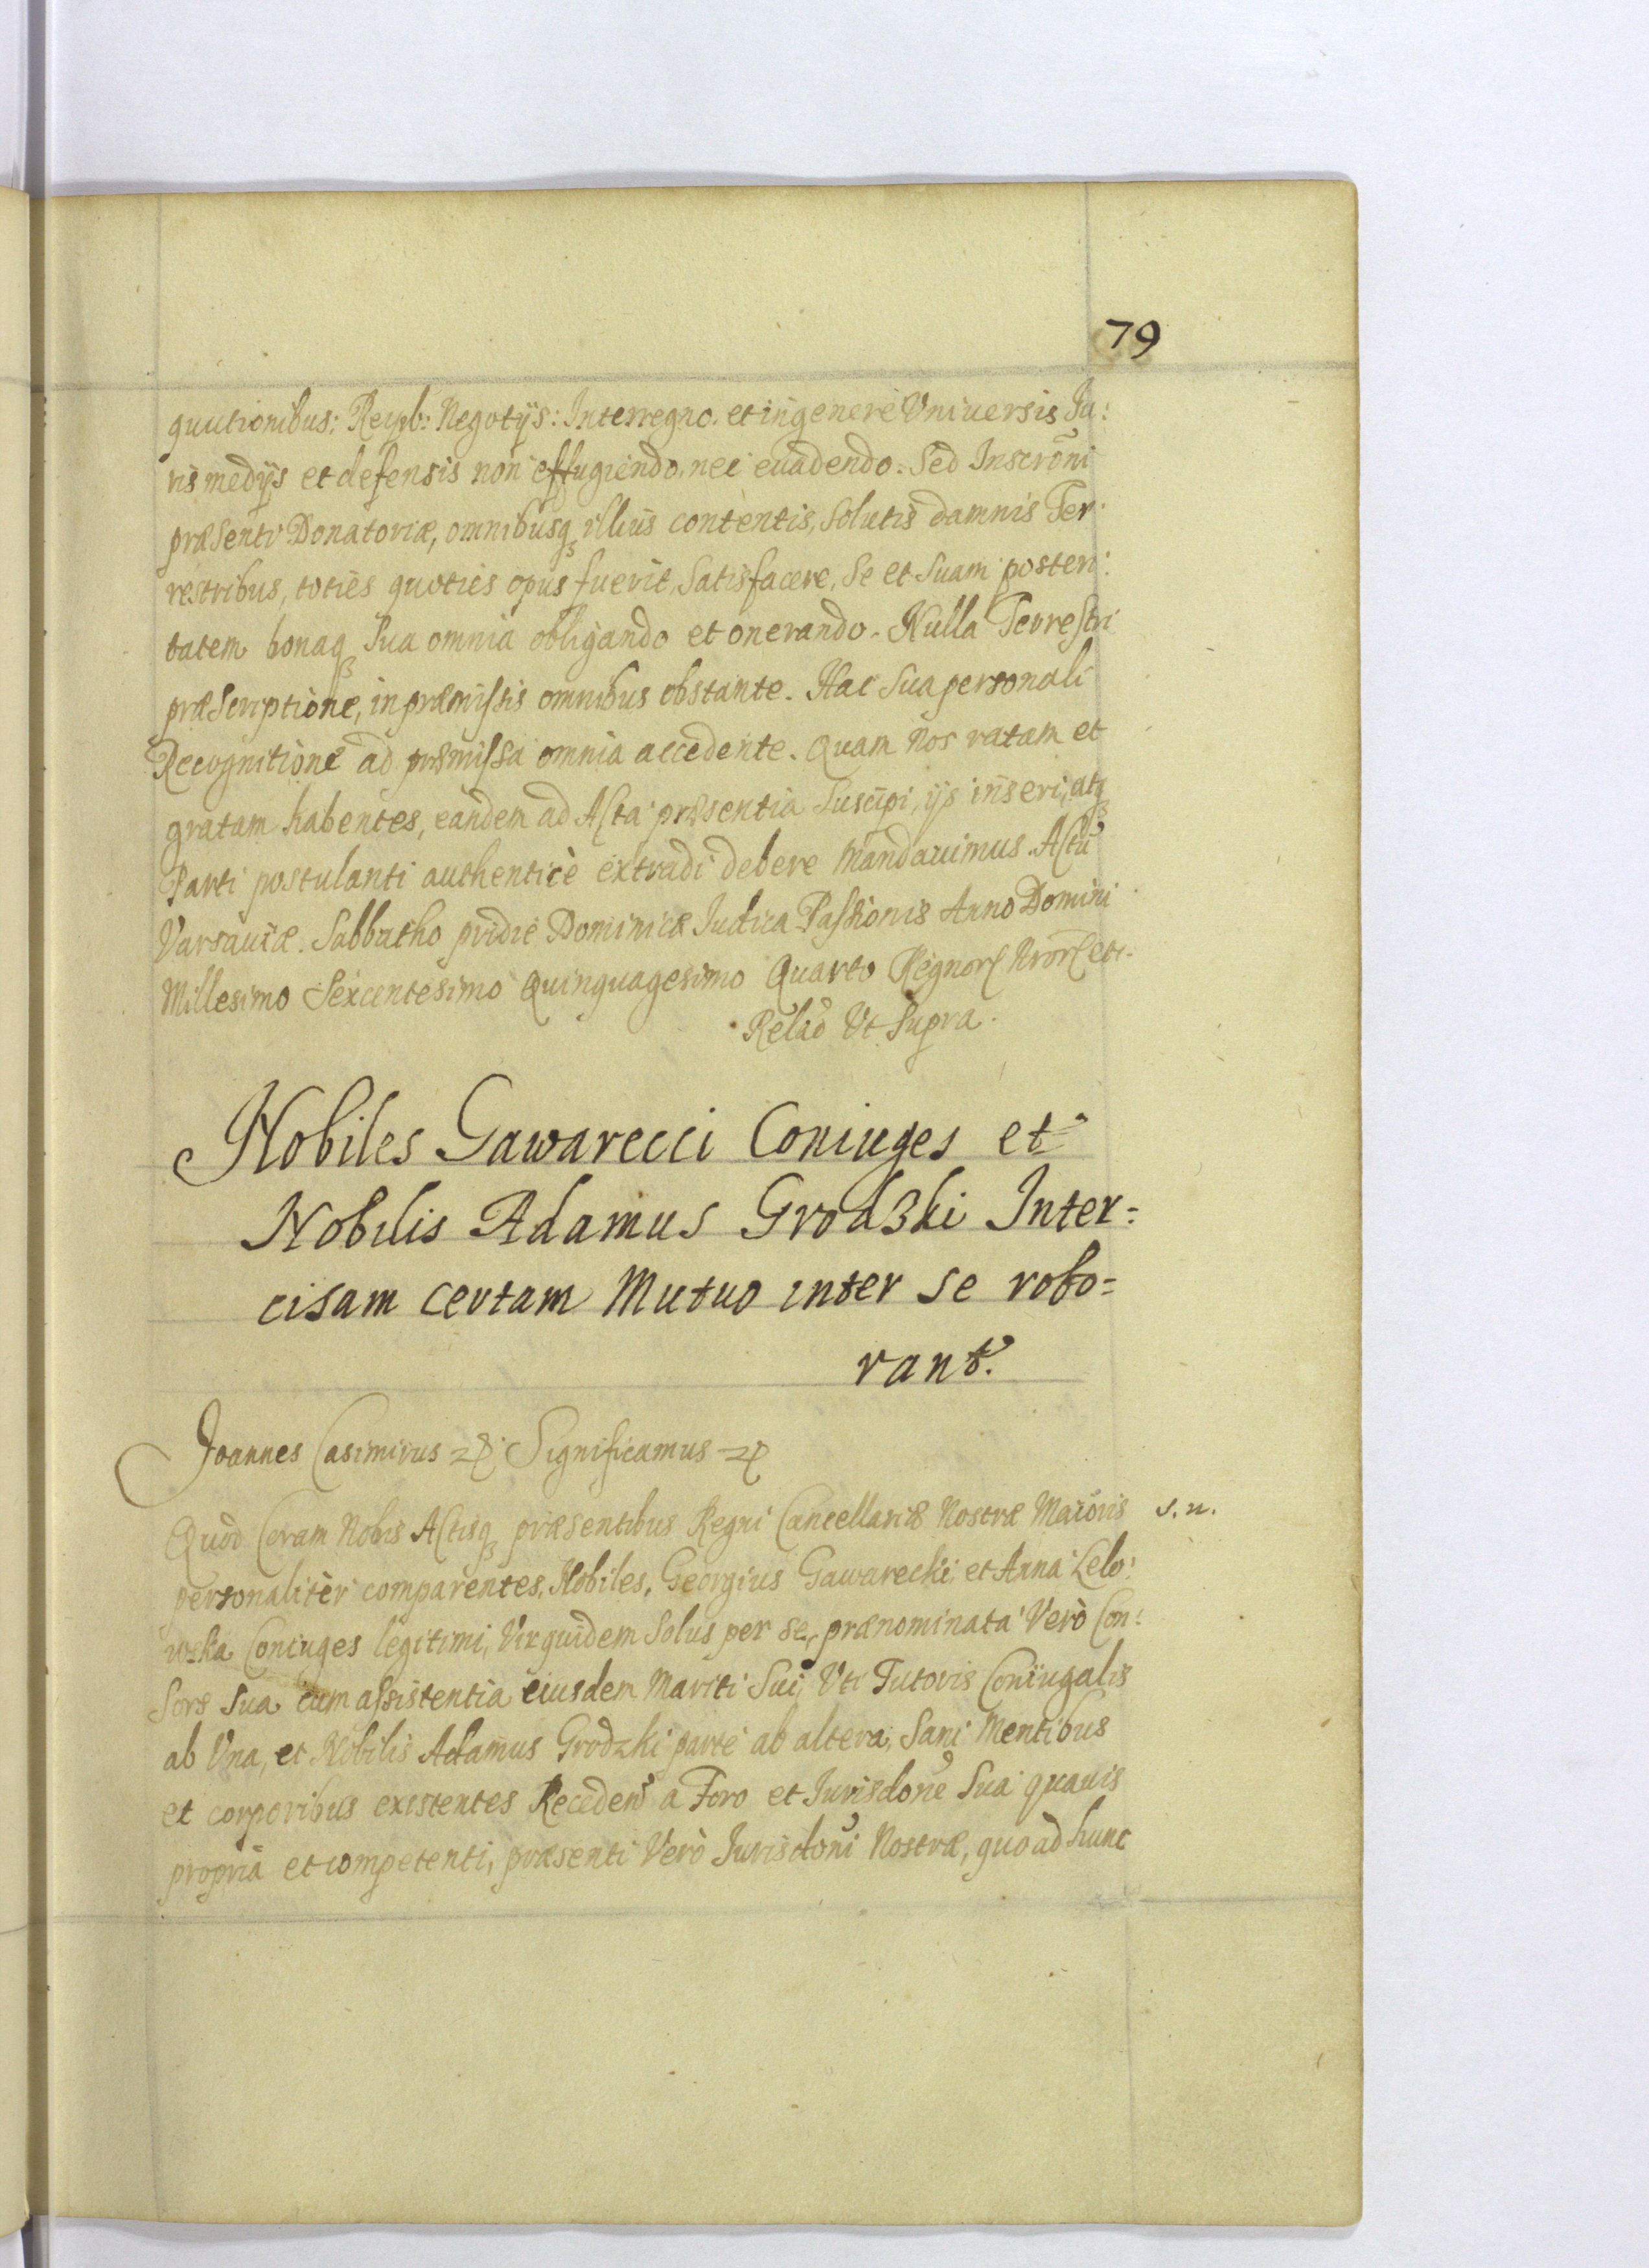 79
quutionibus: Reipb: Negotijs: Interregno. et in genere Vniuersis Iu:
ris medijs et defensis non effugiendo, nec euadendo. Sed Inscrõni
præsenti Donatoriæ, omnibusq₃ illius contentis, Solutis damnis Ter:
restribus, toties quoties opus fuerit, Satisfacere, Se et Suam posteri:
tatem bonaq₃ Sua omnia obligando et onerando. Nulla Terrestri
præscriptione, in præmissis omnibus obstante. Hac Sua personali
Recognitione ad præmissa omnia accedente. Quam Nos ratam et
gratam habentes, eandem ad Acta præsentia Suscipi, ijs inseri, atq₃
Parti postulanti authenticè extradi debere Mandauimus. Actũ
Varsauiæ. Sabbatho pridie Dominicæ Iudica Passionis Anno Domini
Millesimo Sexcentesimo Quinquagesimo Quarto Regnorꝝ Nrorꝝ etc.
Relaõ Vt Supra.
Nobiles Gawarecci Coniuges et
Nobilis Adamus Grodzki Inter=
cisam certam Mutuo inter se robo=
rant.
Joannes Casimirus etc: Significamus etc
Quod Coram Nobis Actisq₃ præsentibus Regni Cancellariæ Nostræ Maioris s. n.
personalitèr comparentes, Nobiles, Georgius Gawarecki et Anna Lelo:
wska Coniuges legitimi, Vir quidem Solus per se, prænominata Verò Con:
Sors Sua cum assistentia eiusdem Mariti Sui, Vti Tutoris Coniugalis
ab Vna, et Nobilis Adamus Grodzki parte ab altera, Sani Mentibus
et corporibus existentes Receden̄ a Foro et Iurisdone Sua quauis
propria et competenti, præsenti Verò Iurisdoni Nostræ, quo ad hunc